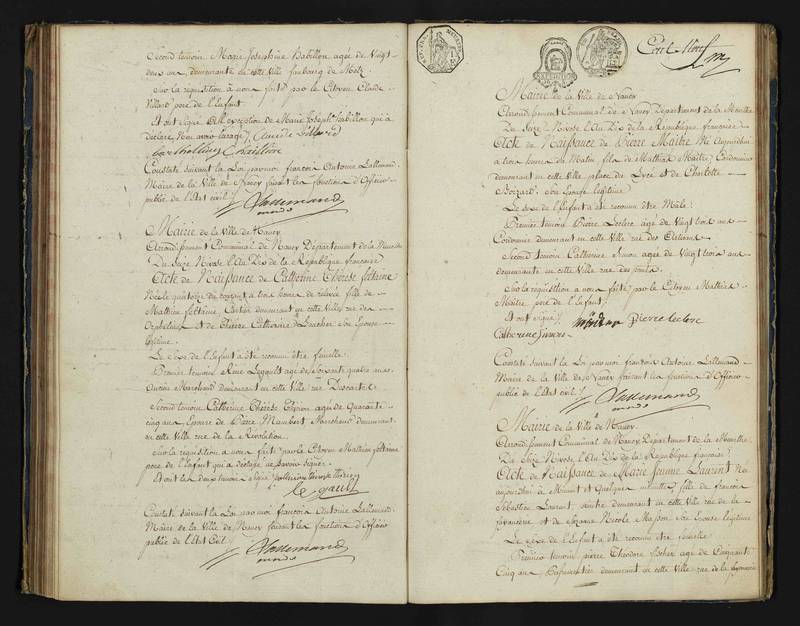 Second temoin Marie Josephine Habillon agée de Vingt-
deux ans, demeurante en cette Ville faubourg de Metz
Sur la requisition à nous faite par le Citoyen Claude
Villard pere de l'Enfant
Et ont signé à l'exception de Marie Joseph habillon qui a
déclaré
Constaté suivant la Loi par moi françois Antoine Lallemand
Maire de la Ville de Nancy faisant les fonctions d'Officier
public de l'Etat civil
Lallemand
Mairie de la Ville de Nancy
Arrondissement Communal de Nancy Département de la Meurthe
Du Seize Nivose l'An Dix de la République française
Acte de Naissance de Catherine Thérèse
Née le quatorze du courant à trois heures de relevée fille de
Mathieu demeurant en cette Ville rue des
Orphelins et de Thérèse Catherine son Epouse
légitime.
Le sexe de l'Enfant a été reconnu être femelle.
Premier temoin agé de Soixante quatre ans
Ancien Marchand demeurant en cette Ville rue
Second temoin Catherine Thérèse Thirion agée de Quarante
cinq ans Epouse de Pierre Maubert Marchand demeurant
en cette Ville rue de la Révolution.
Sur la requisition à nous faite par le Citoyen Mathieu
pere de l'Enfant qui a déclaré ne savoir signer
Et ont les deux temoins signé
Constaté suivant la Loi par moi françois Antoine Lallemand
Maire de la Ville de Nancy faisant les fonctions d'Officier
public de l'Etat Civil
Lallemand
Mairie de la Ville de Nancy
Arrondissement Communal de Nancy Département de la Meurthe
Du Seize Nivose l'An Dix de la République française
Acte de Naissance de Pierre Maitre Né Aujourd'hui
à trois heures du Matin fils de Mathias Maitre Cordonnier
demeurant en cette Ville place du Lycé et de Charlotte
Boizard Son Epouse légitime
Le sexe de l'Enfant a été reconnu être Mâle.
Premier temoin Pierre Leclerc agé de Vingt trois ans
Cordonnier demeurant en cette Ville rue des Artisans
Second temoin Catherine Simon agée de Vingt trois ans
demeurante en cette Ville rue des ponts
Sur la requisition a nous faite par le Citoyen Mathias
Maitre pere de l'Enfant
Et ont signé Pierre leclerc
Catherine Simon
Constaté suivant la Loi par moi françois Antoine Lallemand
Maire de la Ville de Nancy faisant les fonctions d'Officier
public de l'Etat civil
Lallemand
Mairie de la Ville de Nancy.
Arrondissement Communal de Nancy Département de la Meurthe.
Du Seize Nivose l'An Dix de la République française
Acte de Naissance de Marie Jeanne Laurent Née
aujourd'hui à Minuit et Quelques minuttes fille de françois
Sébastien Laurent demeurant en cette Ville rue de la
et de Suzanne Nicole Masson Son Epouse légitime
Le sexe de l'Enfant a été reconnu etre femelle
Premier temoin pierre Theodore agé de Cinquante
Cinq ans, Passementier demeurant en cette Ville rue de la